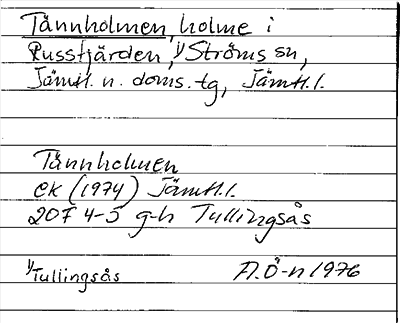 Tånnholmen, holme i
Russfjärden, 1) Ströms sn,
Jämtl. n. doms. tg, Jämtl. l.
Tånnholmen
ek (1974) Jämtl. l.
20F 4-5 g-h Tullingsås
1) Tullingsås A.Ö-n 1976